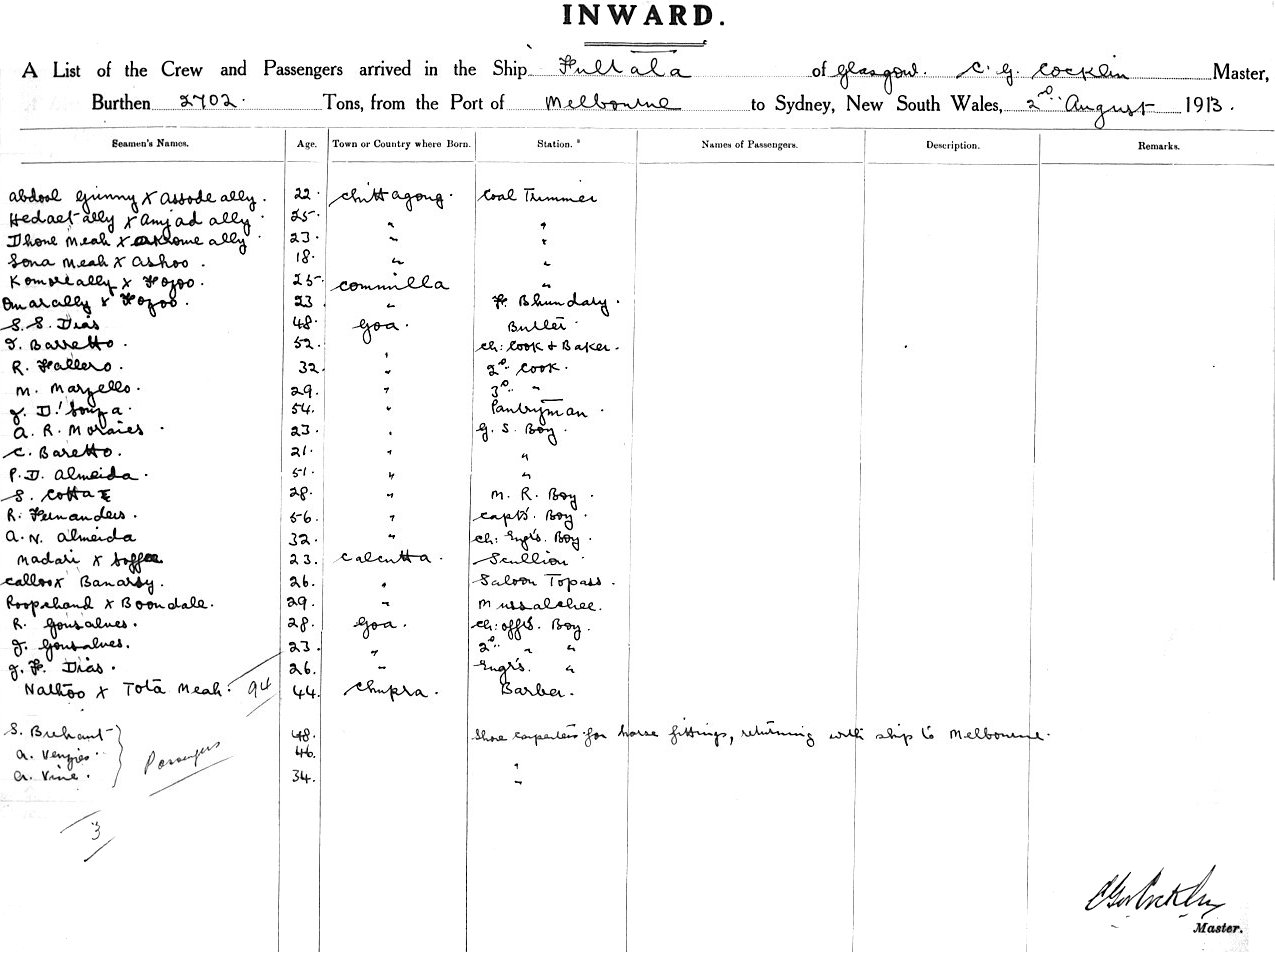 INWARD.
A List of the Crew and Passengers arrived in the Ship Fultala of Glasgow. C. G. Cocklin Master,
Burthen 2702. Tons, from the Port of Melbourne to Sydney, New South Wales, 2nd August 1913.
Seamen's Names. Age. Town or Country where Born. Station. Names of Passengers. Description. Remarks.
Abdool Gunny X Assode ally. 22. Chittagong. Coal Trimmer
Hedaet ally X Amjad ally. 25. " "
Dhone Meah X ally 23. " "
Sona Meah X Ashoo. 18. " "
Komoreally X Fozoo. 25. Commilla "
Omarally X Fozoo. 23 " F. Bhundary.
S. S. Dias 48. Goa. Butler.
T. Barretto. 52. " Ch: Cook & Baker.
R. Fallero. 32. " 2nd Cook.
M. Marzello. 29. " 3rd "
J. D'Souza. 54. " Pantryman.
A. R. Moraies. 23. " G. S. Boy.
C. Baretto. 21. " "
P. D. Almeida. 51. " "
S. Cotta 28. " M. R. Boy.
R. Fernandes. 56. " Capt's. Boy.
A. N. Almeida 32. " Ch: Engr's. Boy.
Madari X 23. Calcutta. Scullion
Calloo X Banarsy. 26. " Saloon Topass.
Roopchand X Boondale. 29. " Mussalchee.
R. Gonsalves. 28. Goa. Ch: Off's. Boy.
J. Gonsalves. 23. " 2nd " "
J. F. Dias. 26. " Engr's. "
Nathoo X Tota Meah. 94 44. Chupra. Barber.
S. 48. Shore carpenters for horse fittings, returning with ship to Melbourne.
A. Venzies. Passengers 46. "
A. Vine. 34. "
3
Master.